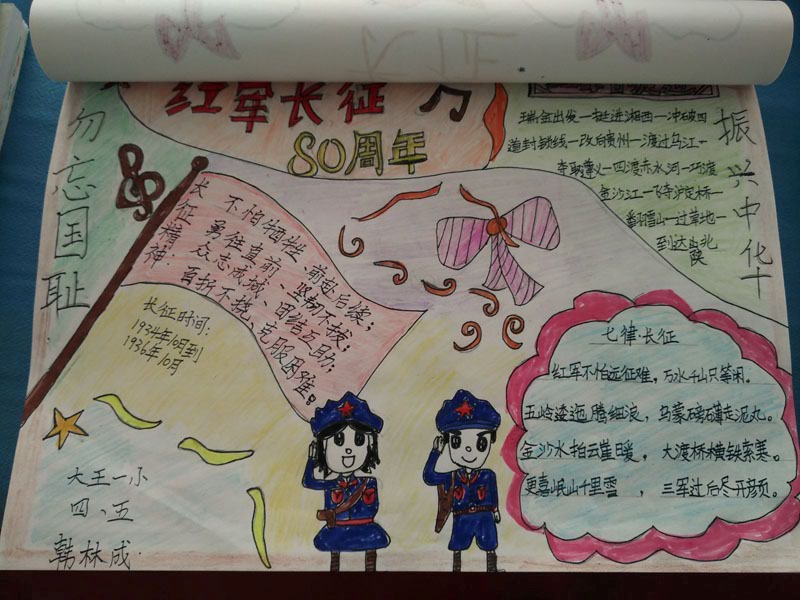 红军长征
80周年
勿忘国耻
振兴中华
瑞金出发一挺进湘西一冲破四
道封锁线一改向贵州一渡过乌江一
夺取遵义一四渡赤水河一巧渡
金沙江一飞夺泸定桥一
翻雪山一过草地一
到达陕北
长征精神:
不怕牺牲、前赴后续;
勇往直前、坚韧不拔;
众志成城、团结互助;
百折不挠、克服困难。
长征时间:
1934年10月到
1936年10月
七律·长征
红军不怕远征难,万水千山只等闲。
五岭逶迤腾细浪,乌蒙磅礴走泥丸。
金沙水拍云崖暖,大渡桥横铁索寒。
更喜岷山千里雪,三军过后尽开颜。
大王一小
四、五
韩林成